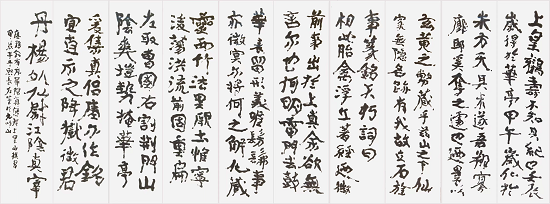 上皇鶴壽不知其紀也壬辰
歲得於華亭甲午歲化於
朱方天其未遂吾翔寥
廓耶奚奪之遽也迺裹以
玄黃之幣藏乎茲山之下仙
家無隱我故立石旌
事篆銘不朽詞曰
相此胎禽浮丘著經迺徵
前事出於上真余欲無
言爾也何明雷門去鼓
華表留形義髣髴事
亦微冥爾將何之解化
靈西竹法里厥土惟寧
後蕩洪流前固重扃
左取曹國右割荆門山
陰爽塏勢掩華亭
爰集真侶瘞爾作銘
宜直示之降嶽徵君
丹楊外仙尉江陰真宰